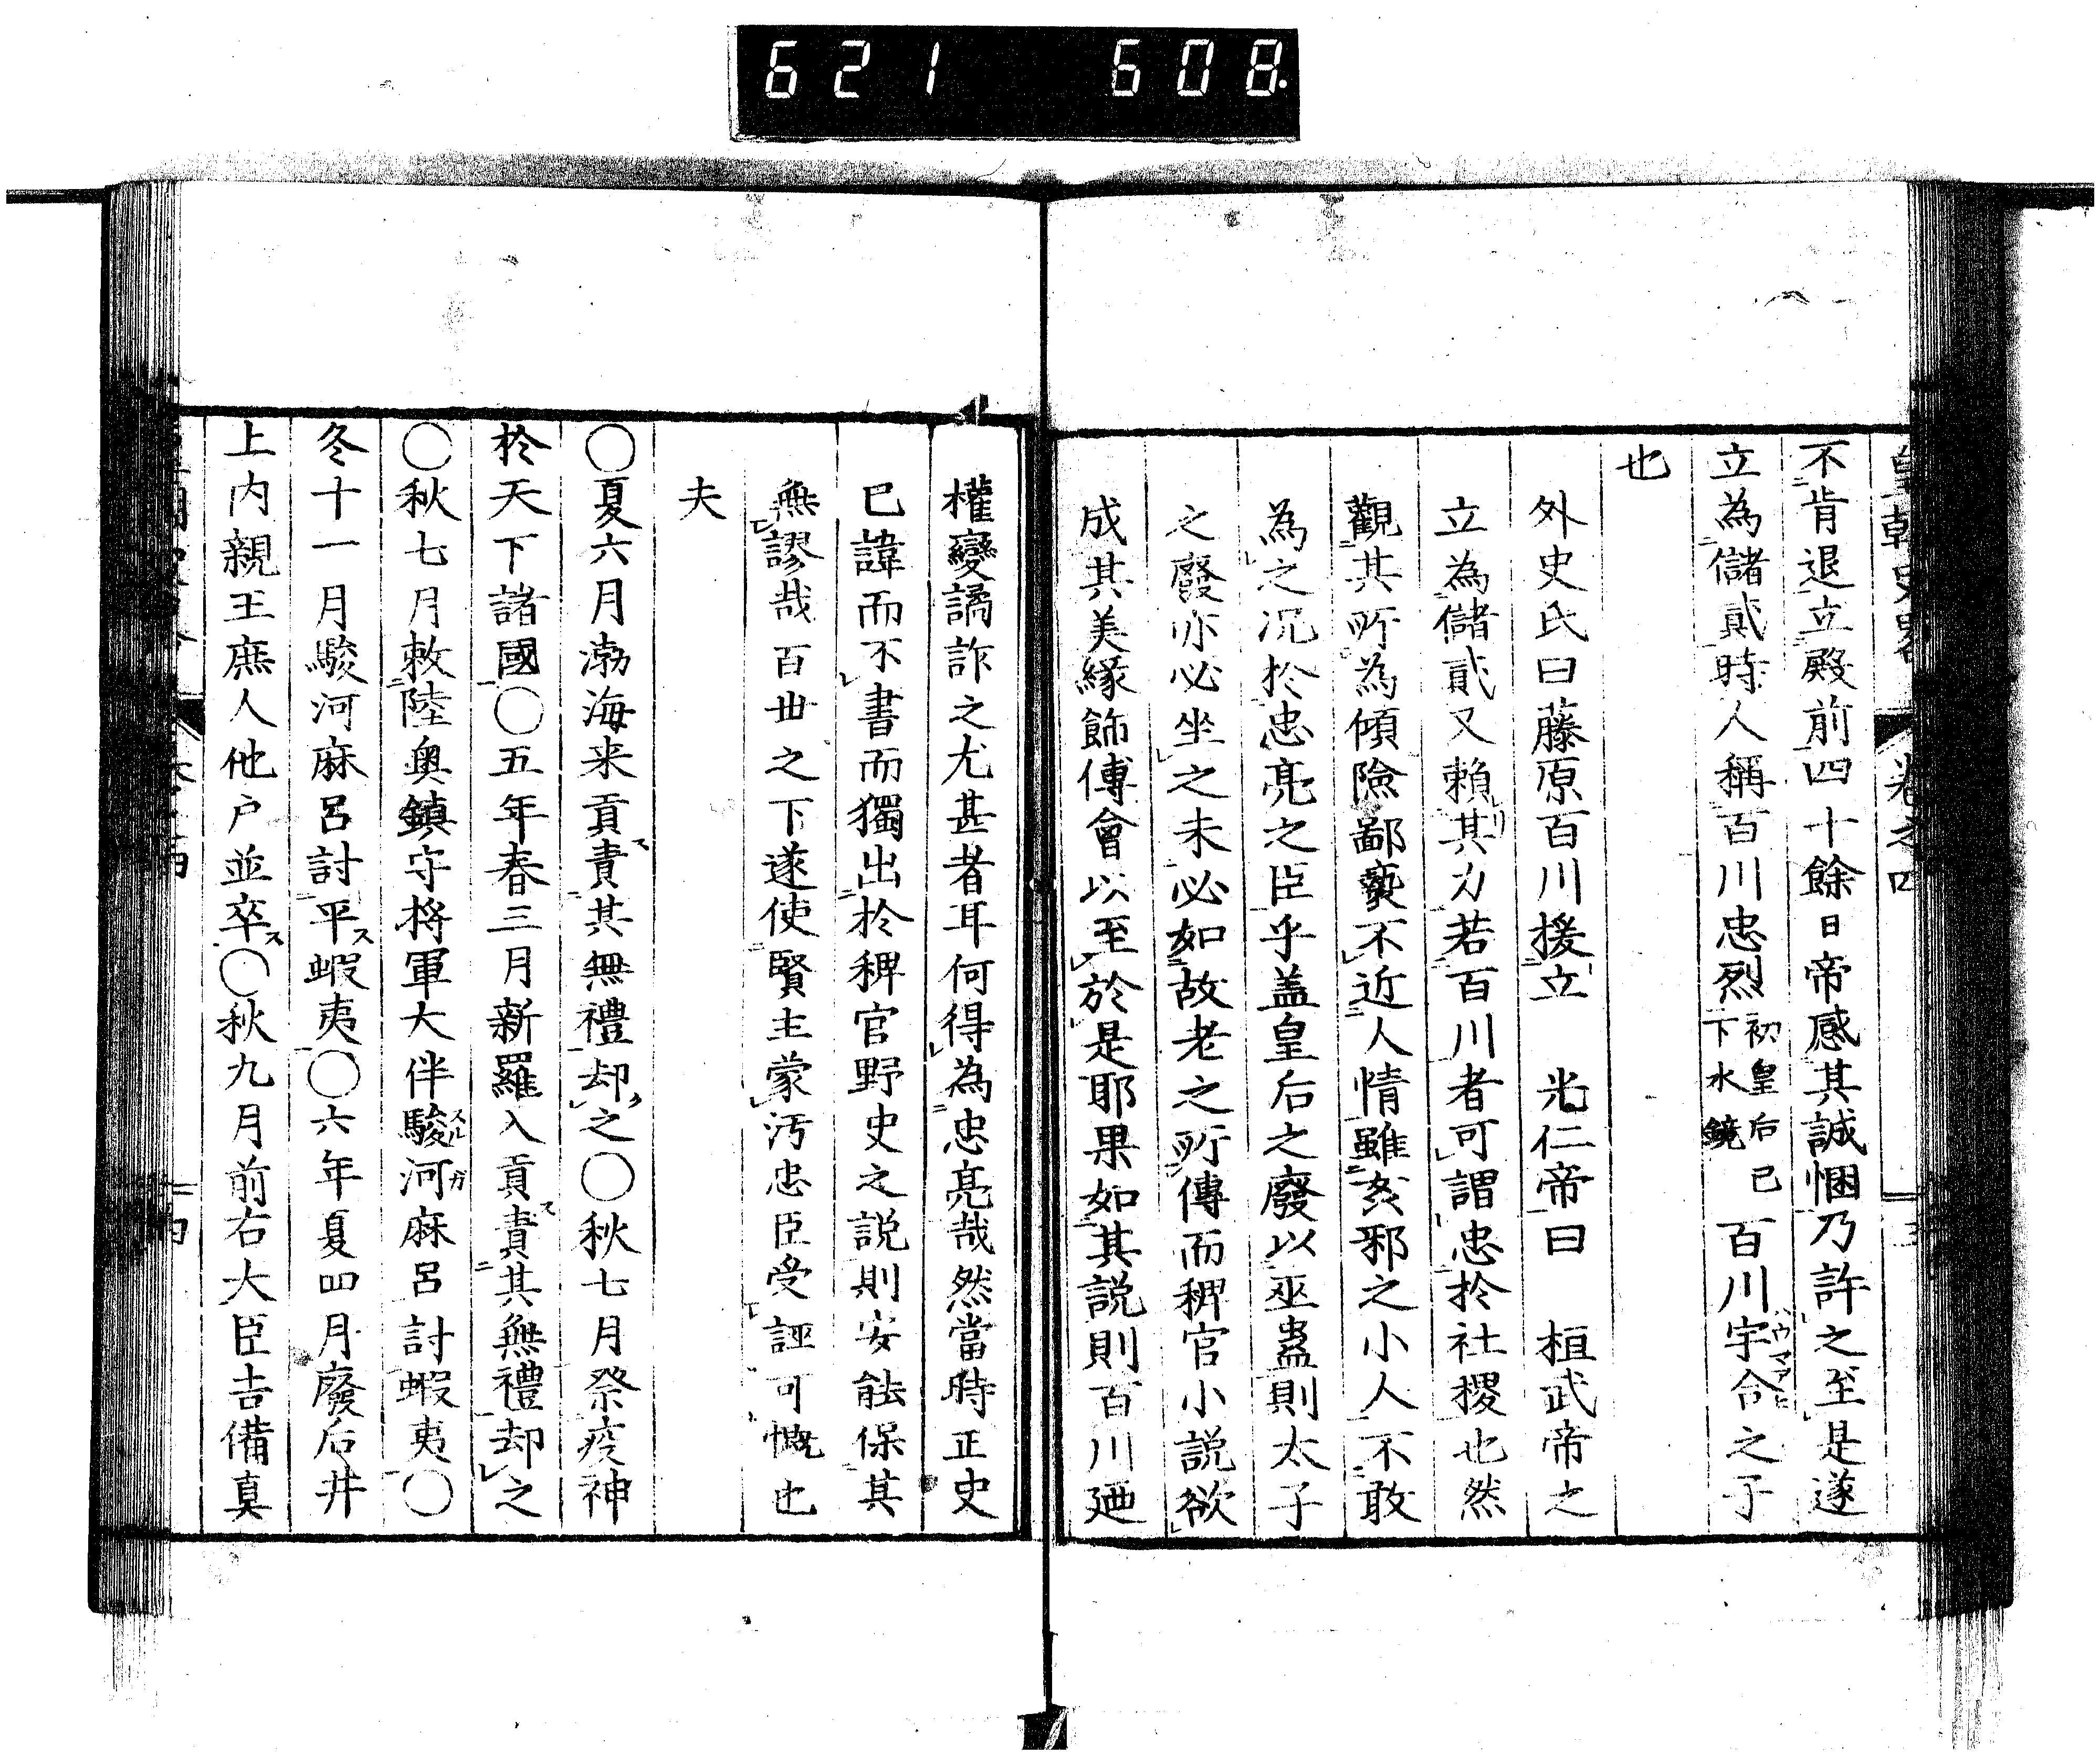 621 608
皇朝史畧 卷之四
不肯退立殿前四十餘日帝感其誠悃乃許之至是遂
立為儲貳時人稱百川忠烈初皇后已下水鏡百川宇合之子
也
外史氏曰藤原百川援立 光仁帝曰 桓武帝之
立為儲貳又頼其力若百川者可謂忠於社稷也然
觀其所為傾險鄙褻不近人情雖姦邪之小人不敢
為之况於忠亮之臣乎盖皇后之廢以巫蠱則太子
之廢亦必坐之未必如故老之所傳而稗官小説欲
成其美縁飾傅會以至於是耶果如其説則百川廼
權變譎詐之尤甚者耳何得為忠亮哉然當時正史
已諱而不書而獨出於稗官野史之説則安能保其
無謬哉百世之下遂使賢主蒙汚忠臣受誣可慨也
夫
〇夏六月渤海来貢責其無禮却之〇秋七月祭疫神
於天下諸國〇五年春三月新羅入貢責其無禮却之
〇秋七月敕陸奥鎮守将軍大伴駿河麻呂討蝦夷〇
冬十一月駿河麻呂討平蝦夷〇六年夏四月廢后井
上内親王庶人他戸並卒〇秋九月前右大臣吉備真